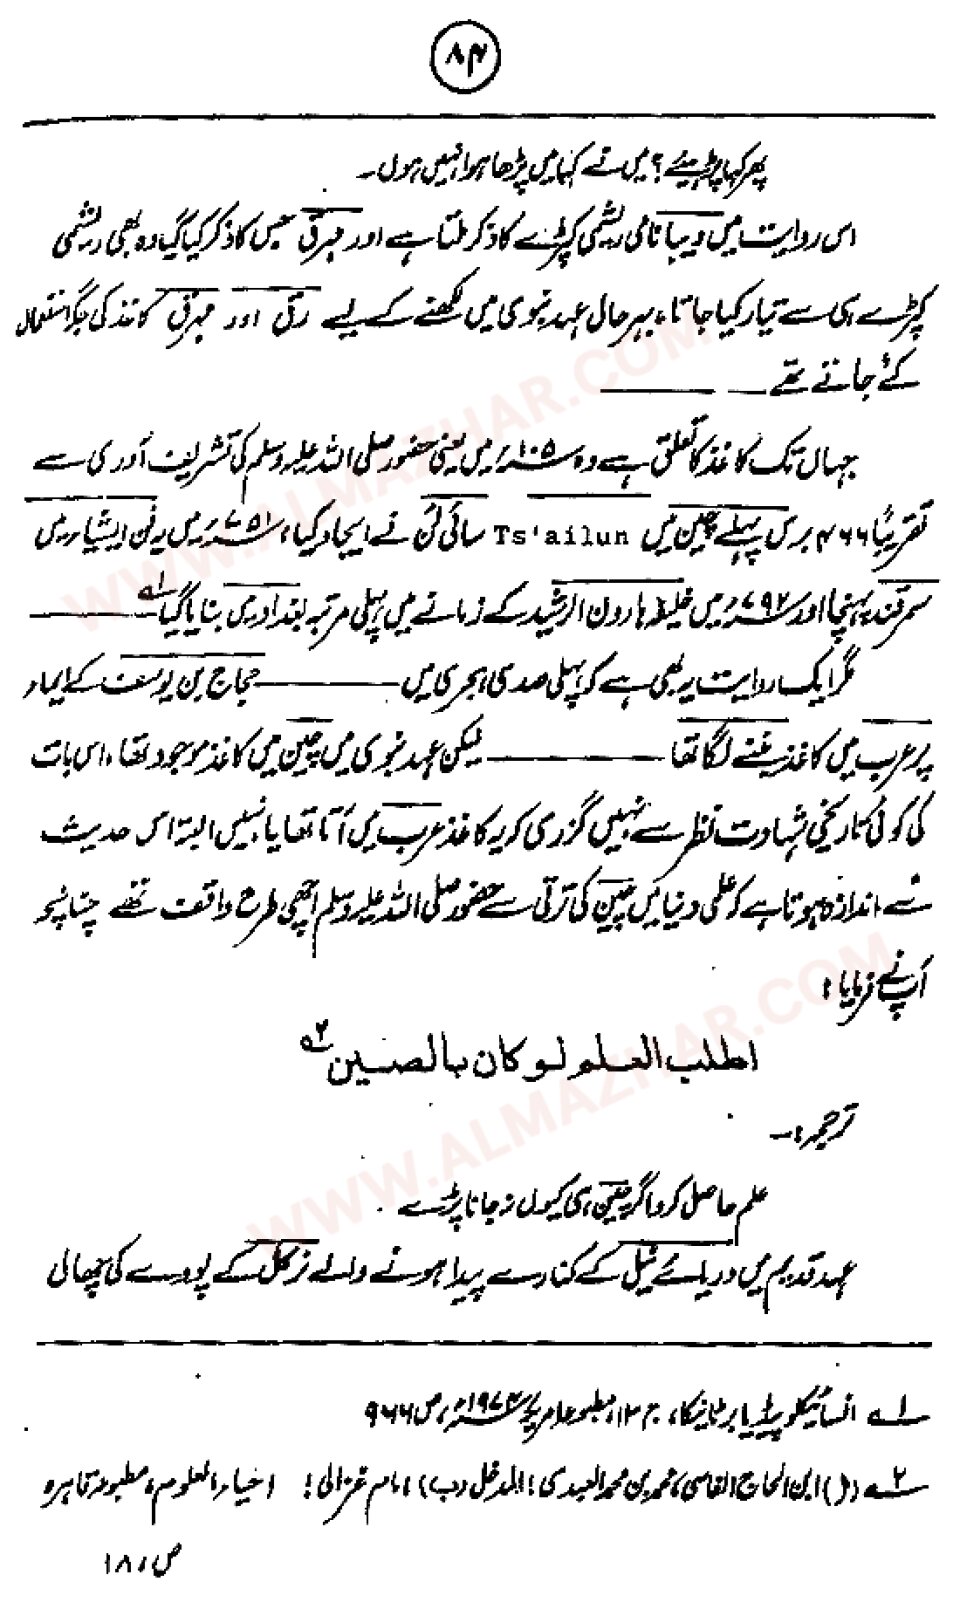 ۸۴
پھر کہا پڑھیئے؟ میں نے کہا میں پڑھا ہوا نہیں ہوں۔
اس روایت میں دیبا نامی ریشمی کپڑے کا ذکر ملتا ہے اور مہرق جس کا ذکر کیا گیا وہ بھی ریشمی
کپڑے ہی سے تیار کیا جاتا، بہر حال عہد نبوی میں لکھنے کے لیے رق اور مہرق کاغذ کی جگہ استعمال
کئے جاتے تھے
جہاں تک کاغذ کا تعلق ہے وہ ۱۰۵ء میں یعنی حضور صلی اللہ علیہ وسلم کی تشریف آوری سے
تقریباً ۴۶۶ برس پہلے چین میں Ts'ailun سائی لُن نے ایجاد کیا، ۷۵۱ء میں یہ فن ایشیاء میں
سمرقند پہنچا اور ۷۹۲ء میں خلیفہ ہارون الرشید کے زمانے میں پہلی مرتبہ بغداد میں بنایا گیا ۱؎
مگر ایک روایت یہ بھی ہے کہ پہلی صدی ہجری میں حجاج بن یوسف کے ایماء
پر عرب میں کاغذ بننے لگا تھا لیکن عہد نبوی میں چین میں کاغذ موجود تھا، اس بات
کی کوئی تاریخی شہادت نظر سے نہیں گزری کہ یہ کاغذ عرب میں آتا تھا یا نہیں البتہ اس حدیث
سے اندازہ ہوتا ہے کہ علمی دنیا میں چین کی ترقی سے حضور صلی اللہ علیہ وسلم اچھی طرح واقف تھے چنانچہ
آپ نے فرمایا :
اطلب العلم لو کان بالصین ۲؎
ترجمہ :۔
علم حاصل کرو اگر چین ہی کیوں نہ جانا پڑے۔
عہد قدیم میں دریائے نیل کے کنارے پیدا ہونے والے نرکل کے پودے کی چھالی
۱؎ انسائیکلوپیڈیا برٹانیکا، ج ۱۳، مطبوعہ امریکہ ۱۹۷۳ء، ص ۹۶۶
۲؎ (ا) ابن الحاج الفاسی، محمد بن محمد العبدی : المدخل (ب) امام غزالی : احیاء العلوم، مطبوعہ قاہرہ
ص، ۱۸۱
WWW.ALMAZHAR.COM
WWW.ALMAZHAR.COM